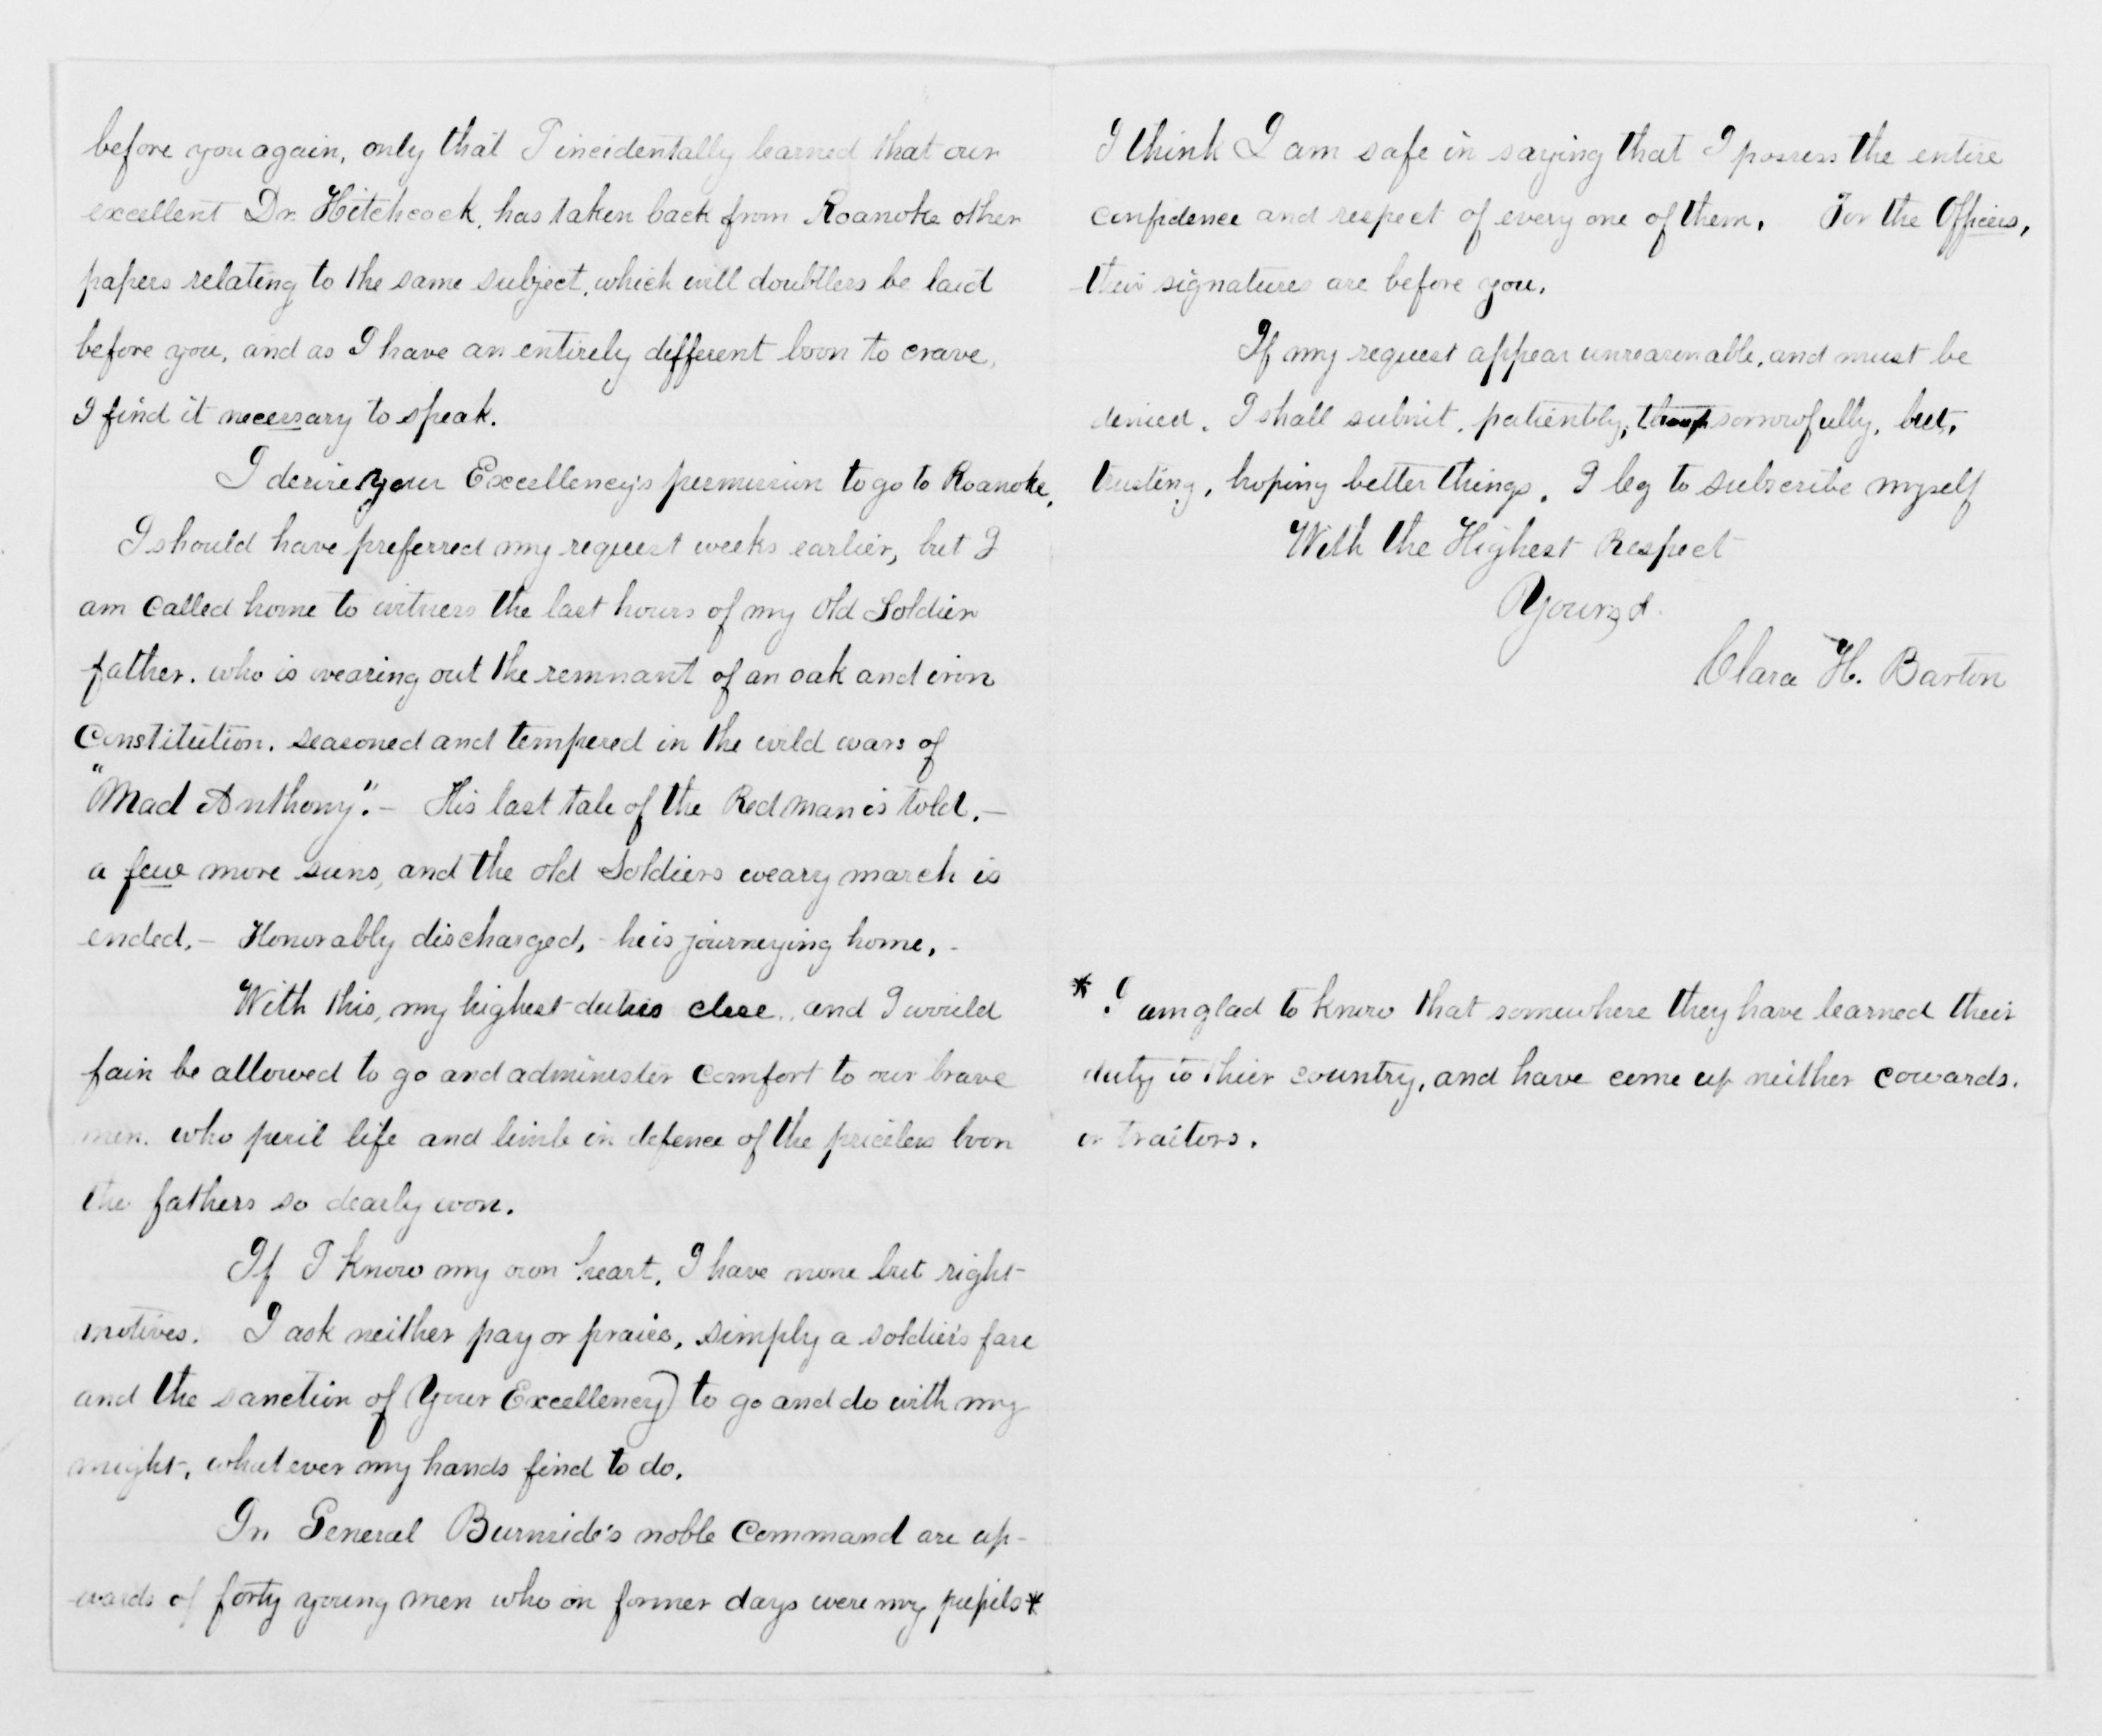 before you again, only that I incidentally learned that our
excellent Dr. Hitchcock, has taken back from Roanoke other
papers relating to the same subject, which will doubtless be laid
before you, and as I have an entirely different boon to crave,
I find it necessary to speak.
I desire your Excellency's permission to go to Roanoke,
I should have preferred my request weeks earlier, but I
am called home to witness the last hours of my old Soldier
father. who is wearing out the remnant of an oak and iron
Constitution. seasoned and tempered in the wild wars of
"Mad Anthony". – His last tale of the Red man is told. –
a few more suns, and the old Soldiers weary march is
ended. – Honorably discharged, - he is journeying home. -
With this, my highest duties close, and I would
fain be allowed to go and administer comfort to our brave
men. who peril life and limb in defence of the priceless boon
the fathers so dearly won.
If I know my own heart, I have none but right
motives. I ask neither pay or praise, simply a soldier's fare
and the sanction of Your Excellency) to go and do with my
might, whatever my hands find to do.
In General Burnside's noble Command are up-
wards of forty young men who in former days were my pupils *
I think I am safe in saying that I possess the entire
confidence and respect of every one of them. For the Officers,
their signatures are before you.
If my request appear unreasonable, and must be
denied. I shall submit, patiently, though sorrowfully, but,
trusting, hoping better things. I beg to subscribe myself
With the Highest Respect
Yours &
Clara H. Barton
* I am glad to know that somewhere they have learned their
duty to thier country, and have come up neither cowards.
or traitors.